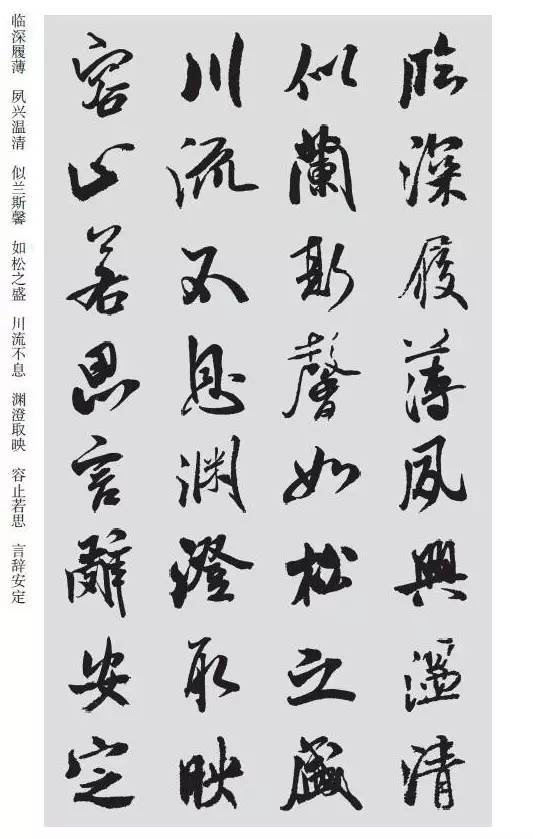 臨深履薄夙興温清
似蘭斯馨如松之盛
川流不息淵澄取映
容止若思言辭安定
临深履薄 夙兴温清 似兰斯馨 如松之盛 川流不息 渊澄取映 容止若思 言辞安定